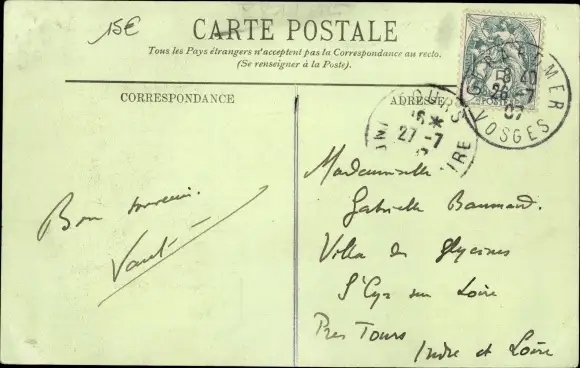 15€
CARTE POSTALE
Tous les Pays étrangers n'acceptent pas la Correspondance au recto.
(Se renseigner à la Poste).
CORRESPONDANCE
ADRESSE
5
8 40
26-7
07
VOSGES
TOURS
16*
27-7
Bon souvenir.
Mademoiselle
Gabrielle
Villa des Glycines
St Cyr sur Loire
Près Tours
Indre et Loire